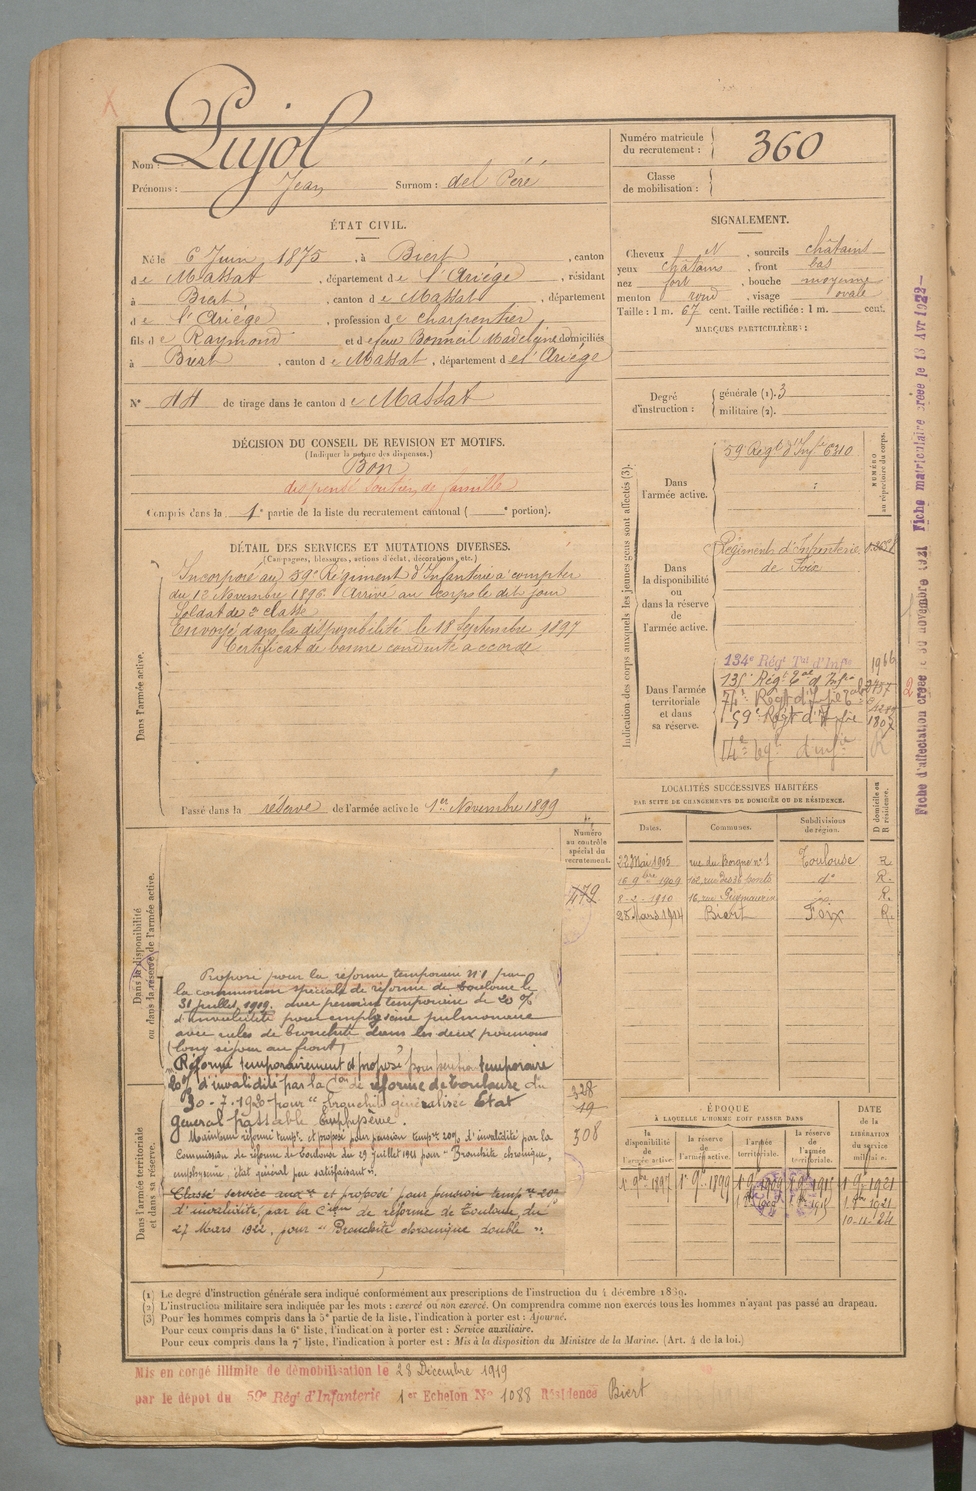 Nom : Pujol
Prénoms : Jean Surnom : del Péré
Numéro matricule du recrutement : 360
Classe de mobilisation :
ÉTAT CIVIL.
Né le 6 Juin 1875, à Biert, canton
de Massat, département de l'Ariège, résidant
à Biert, canton de Massat, département
de l'Ariège, profession de charpentier
fils de Raymond et de feue Bonneil Madeleine domiciliés
à Biert, canton de Massat, département de l'Ariège
N° 44 de tirage dans le canton de Massat
SIGNALEMENT.
Cheveux N, sourcils châtains
yeux châtains, front bas
nez fort, bouche moyenne
menton rond, visage ovale
Taille : 1 m. 67 cent. Taille rectifiée : 1 m. cent.
MARQUES PARTICULIÈRES :
Degré d'instruction : générale (1). 3
militaire (2).
DÉCISION DU CONSEIL DE REVISION ET MOTIFS.
(Indiquer la nature des dispenses.)
Bon
dispensé soutien de famille
Compris dans la 1e partie de la liste du recrutement cantonal ( e portion).
DÉTAIL DES SERVICES ET MUTATIONS DIVERSES.
(Campagnes, blessures, actions d'éclat, décorations, etc.)
Dans l'armée active.
Incorporé au 59e Régiment d'Infanterie à compter
du 13 Novembre 1896. Arrivé au corps le dit jour
Soldat de 2e classe
Envoyé dans la disponibilité le 18 Septembre 1897
Certificat de bonne conduite accordé
Passé dans la réserve de l'armée active le 1er Novembre 1899
Indication des corps auxquels les jeunes gens sont affectés (3).
NUMÉRO au répertoire du corps.
Dans l'armée active.
59e Régt d'Infie 6310
Dans la disponibilité ou dans la réserve de l'armée active.
Régiment d'Infanterie
de Foix
Dans l'armée territoriale et dans sa réserve.
134e Régt Tal d'Infie 1966
135e Régt Tal d'Infie
59e Régt d'Infie 1807
14e Rgt d'infie R
LOCALITÉS SUCCESSIVES HABITÉES
PAR SUITE DE CHANGEMENTS DE DOMICILE OU DE RÉSIDENCE.
Dates. Communes. Subdivisions de région. D domicile ou R résidence.
22 Mai 1905 rue du Borgne n° 1 Toulouse R
16 9bre 1909 102, rue des 36 ponts do R.
8-2-1910 16, rue R.
28 Mars 1914 Biert Foix R.
Numéro au contrôle spécial du recrutement.
472
Dans la disponibilité ou dans la réserve de l'armée active.
Proposé pour la réforme temporaire N° 1 par
la commission spéciale de réforme de Toulouse le
31 juillet 1919. avec pension temporaire de 20 %
d'invalidité pour emphysème pulmonaire
avec râles de bronchite dans les deux poumons
(long séjour au front)
Réformé temporairement et proposé pour pension temporaire
20% d'invalidité par la Con de réforme de Toulouse du
30-7-1920 pour "bronchite généralisée Etat
général passable Emphysème.
Dans l'armée territoriale et dans sa réserve.
328
19
308
Maintenu réformé tempre et proposé pour pension tempre 20% d'invalidité par la
Commission de réforme de Toulouse du 29 juillet 1921 pour "Bronchite chronique,
emphysème, état général peu satisfaisant".
Classé service auxre et proposé pour pension tempre 20%
d'invalidité, par la Cion de réforme de Toulouse, du
27 Mars 1922, pour "Bronchite chronique double".
ÉPOQUE
À LAQUELLE L'HOMME DOIT PASSER DANS
la disponibilité de l'armée active. la réserve de l'armée active. l'armée territoriale. la réserve de l'armée territoriale.
DATE de la LIBÉRATION du service militaire.
1er 9bre 1897 1er 9bre 1899 1er 9bre 1909 1er 9bre 1915 1er 9bre 1921
10-11-24
(1) Le degré d'instruction générale sera indiqué conformément aux prescriptions de l'instruction du 4 décembre 1889.
(2) L'instruction militaire sera indiquée par les mots : exercé ou non exercé. On comprendra comme non exercés tous les hommes n'ayant pas passé au drapeau.
(3) Pour les hommes compris dans la 5e partie de la liste, l'indication à porter est : Ajourné.
Pour ceux compris dans la 6e liste, l'indication à porter est : Service auxiliaire.
Pour ceux compris dans la 7e liste, l'indication à porter est : Mis à la disposition du Ministre de la Marine. (Art. 4 de la loi.)
Mis en congé illimité de démobilisation le 28 Décembre 1919
par le dépot du 59e Rég d'Infanterie 1er Echelon No 1088 Résidence Biert
Fiche d'affectation créée le 30 novembre 1921 Fiche matriculaire créée le 13 Avr 1922